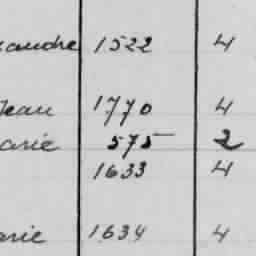 xandre 1522 4
Jean 1770 4
arie 575 2
1633 4
arie 1634 4